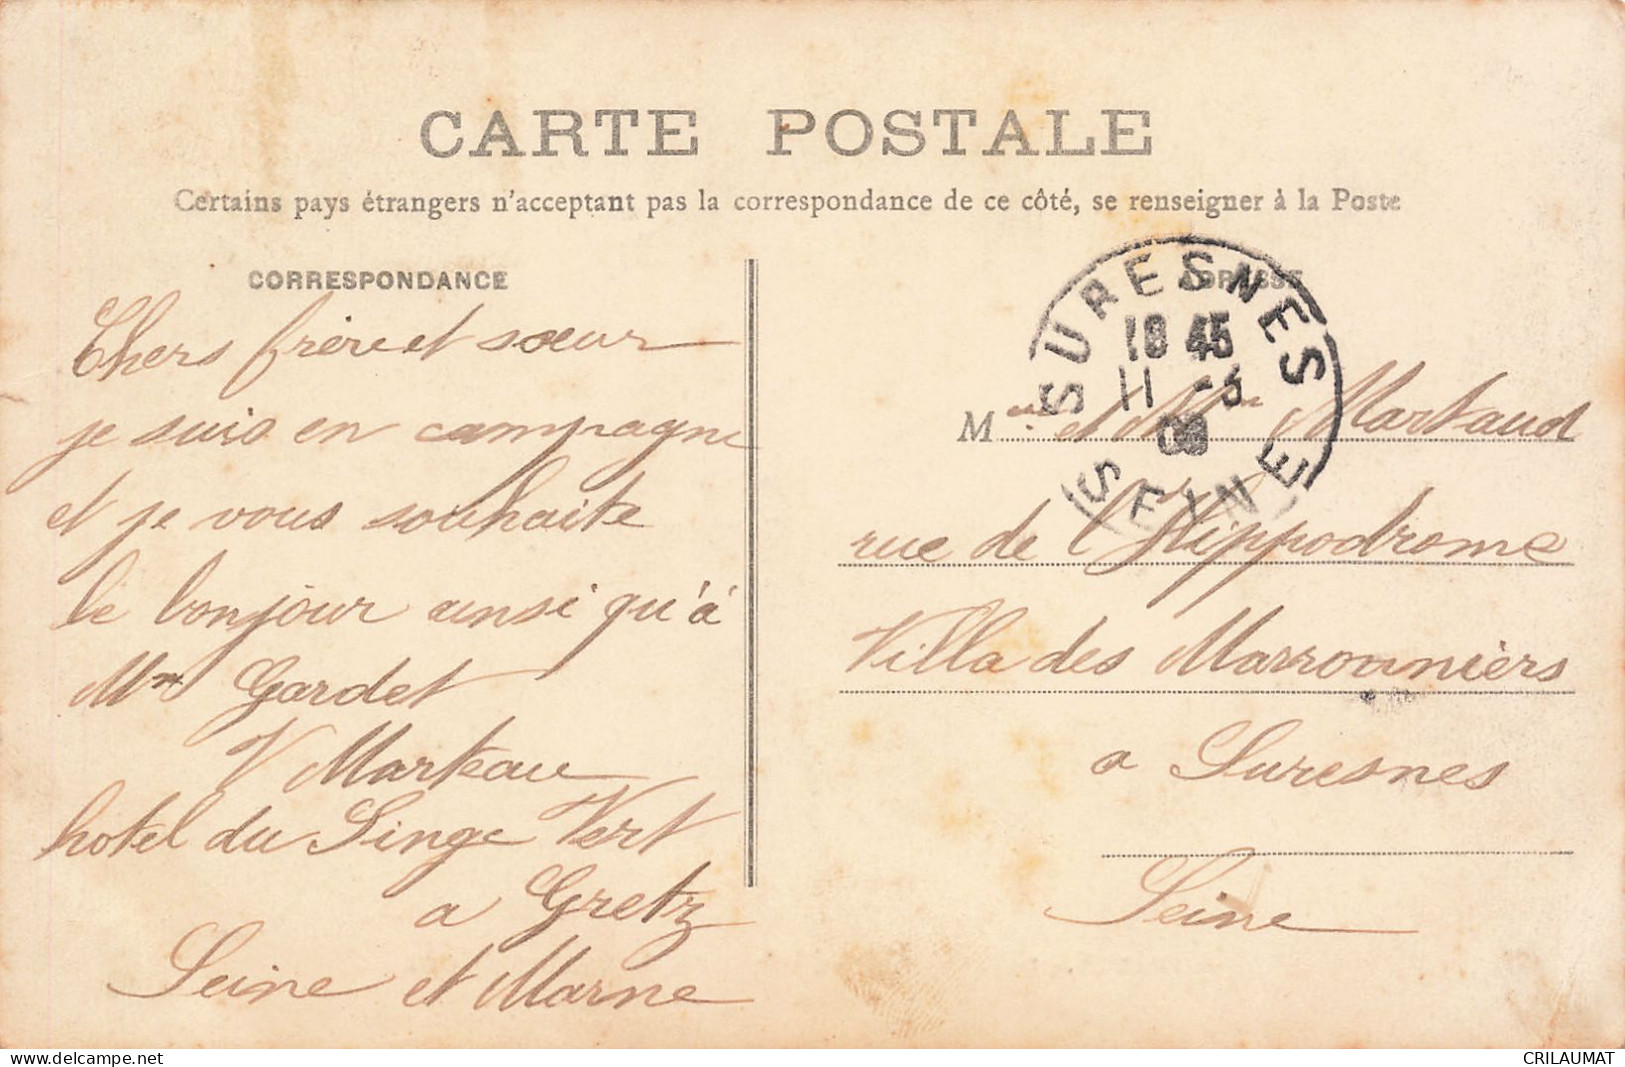 CARTE POSTALE
Certains pays étrangers n'acceptant pas la correspondance de ce côté, se renseigner à la Poste
CORRESPONDANCE
Chers frère et sœur
je suis en campagne
et je vous souhaite
le bonjour ainsi qu'à
Mme Gardet
V Marteau
hotel du Singe Vert
a Gretz
Seine et Marne
ADRESSE
SURESNES
18 45
11 -5
09
SEINE
M et Mme Martaud
rue de l'Hippodrome
Villa des Marronniers
a Suresnes
Seine
delcampe.net
CRILAUMAT